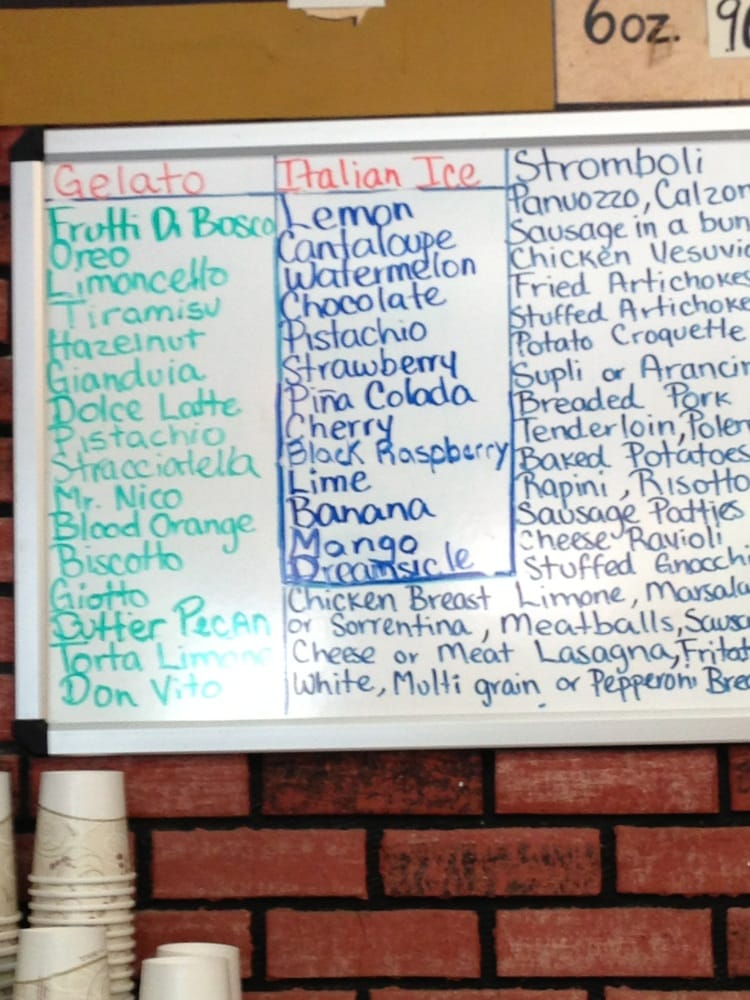 6oz.
Gelato
Frutti Di Bosco
Oreo
Limoncello
Tiramisu
Hazelnut
Gianduia
Dolce Latte
Pistachio
Stracciatella
Mr. Nico
Blood Orange
Biscotto
Giotto
Butter Pecan
Torta Limone
Don Vito
Italian Ice
Lemon
Cantaloupe
Watermelon
Chocolate
Pistachio
Strawberry
Piña Colada
Cherry
Black Raspberry
Lime
Banana
Mango
Dreamsicle
Stromboli
Panuozzo, Calzon
Sausage in a bun
Chicken Vesuvio
Fried Artichokes
Stuffed Artichoke
Potato Croquette
Supli or Arancin
Breaded Pork
Tenderloin, Polen
Baked Potatoes
Rapini, Risotto
Sausage Patties
Cheese Ravioli
Stuffed Gnocchi
Chicken Breast Limone, Marsala
or Sorrentina, Meatballs, Sausa
Cheese or Meat Lasagna, Fritat
White, Multi grain or Pepperoni Brea